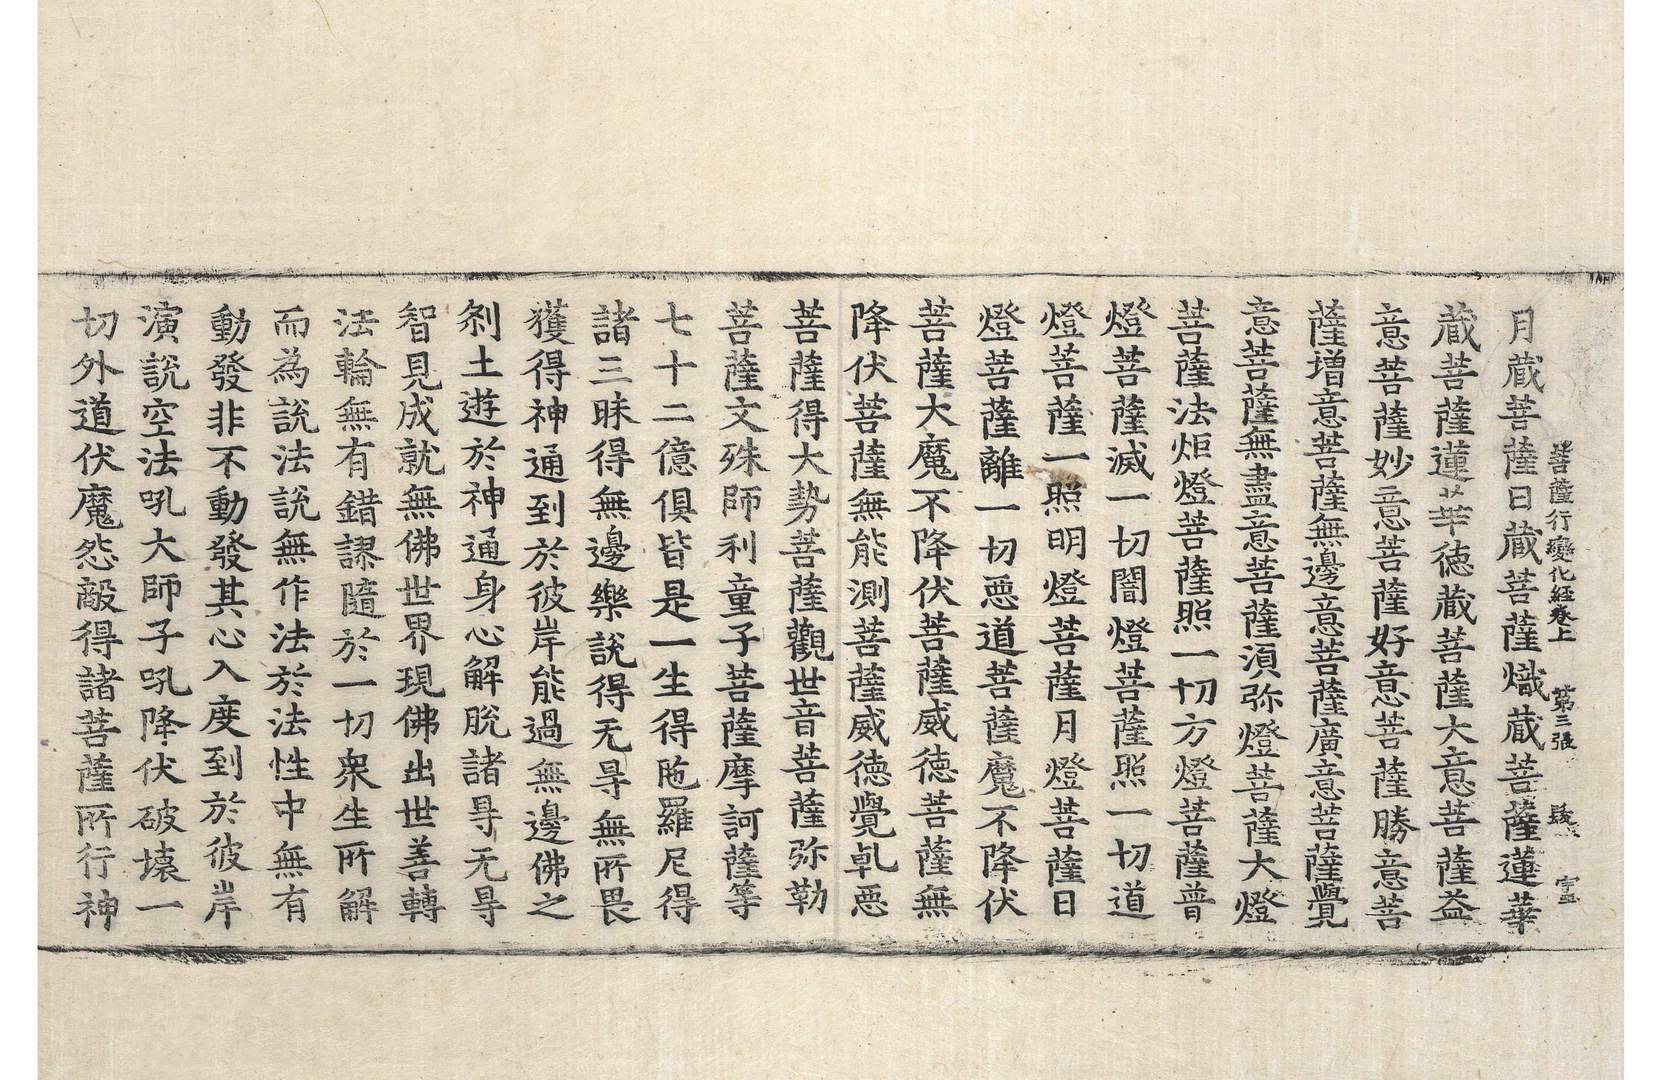 菩薩行變化經卷上 第三張 宇
月藏菩薩日藏菩薩熾藏菩薩蓮華
藏菩薩蓮華德藏菩薩大意菩薩益
意菩薩妙意菩薩好意菩薩勝意菩
薩增意菩薩無邊意菩薩廣意菩薩覺
意菩薩無盡意菩薩湏弥燈菩薩大燈
菩薩法炬燈菩薩照一切方燈菩薩普
燈菩薩滅一切闇燈菩薩照一切道
燈菩薩一照明燈菩薩月燈菩薩日
燈菩薩離一切惡道菩薩魔不降伏
菩薩大魔不降伏菩薩威德菩薩無
降伏菩薩無能測菩薩威德覺乹惡
菩薩得大勢菩薩觀世音菩薩弥勒
菩薩文殊師利童子菩薩摩訶薩等
七十二億俱皆是一生得陁羅尼得
諸三昧得無邊樂說得无㝵無所畏
獲得神通到於彼岸能過無邊佛之
刹土遊於神通身心解脫諸㝵无㝵
智見成就無佛世界現佛出世善轉
法輪無有錯謬隨於一切衆生所解
而為說法說無作法於法性中無有
動發非不動發其心入度到於彼岸
演說空法吼大師子吼降伏破壞一
切外道伏魔怨敵得諸菩薩所行神